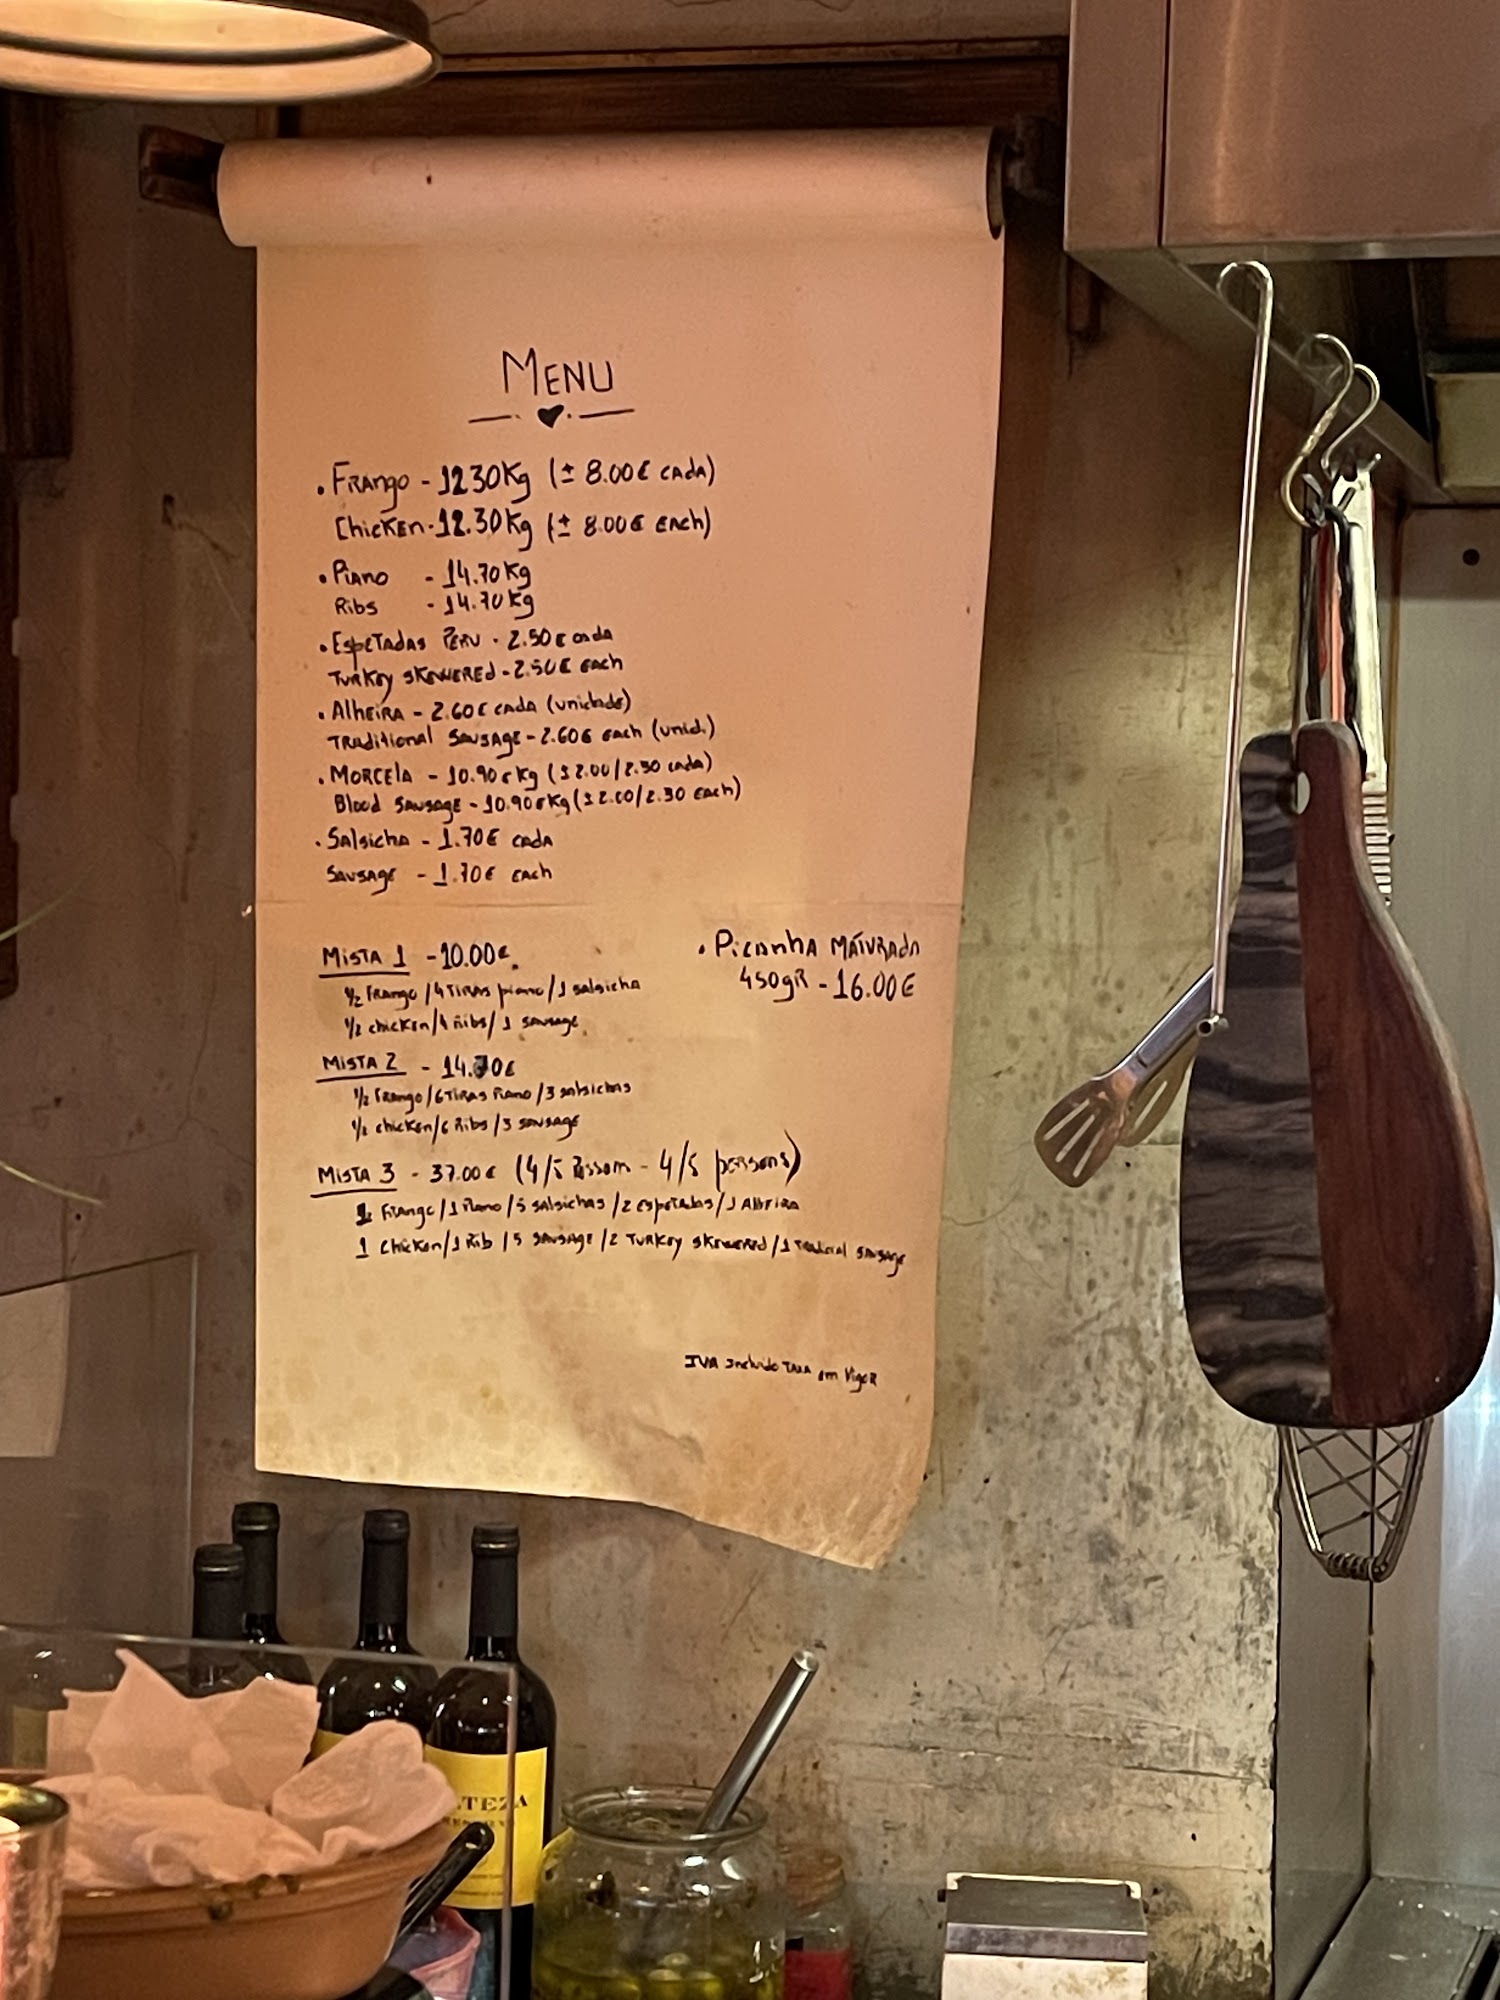 MENU
• FRANGO - 12.30Kg (± 8.00€ CADA)
ChicKEN - 12.30Kg (± 8.00€ EACh)
• PIANO - 14.70Kg
RIBS - 14.70Kg
• EspETADAS PERU - 2.50€ CADA
TURKEY SKEWERED - 2.50€ EACh
• AlhEIRA - 2.60€ CADA (unidade)
TRAditional SAUSAGE - 2.60€ EACh (unid.)
• MORCElA - 10.90€Kg (± 2.00/2.50 CADA)
Blood SAUSAGE - 10.90€Kg (± 2.00/2.50 EACh)
• Salsicha - 1.70€ CADA
SAUSAGE - 1.70€ EACh
MISTA 1 - 10.00€
1/2 FRANGO / 4 TIRAS piano / 1 salsicha
1/2 chicKEN / 4 Ribs / 1 SAUSAGE
• Picanha MATURADA
450gR - 16.00€
MISTA 2 - 14.70€
1/2 FRANGO / 6 TIRAS PIANO / 3 salsichas
1/2 chicKEN / 6 Ribs / 3 SAUSAGE
MISTA 3 - 37.00€ (4/5 - 4/5 pERSONS)
1 FRANGO / 1 PIANO / 5 SAlsichas / 2 EspETADAS / 1 AlhEIRA
1 ChicKEN / 1 Rib / 5 SAUSAGE / 2 TURKEY SKEWERED / 1 SAUSAGE
IVA Incluido TAXA em VigoR
LTEZA